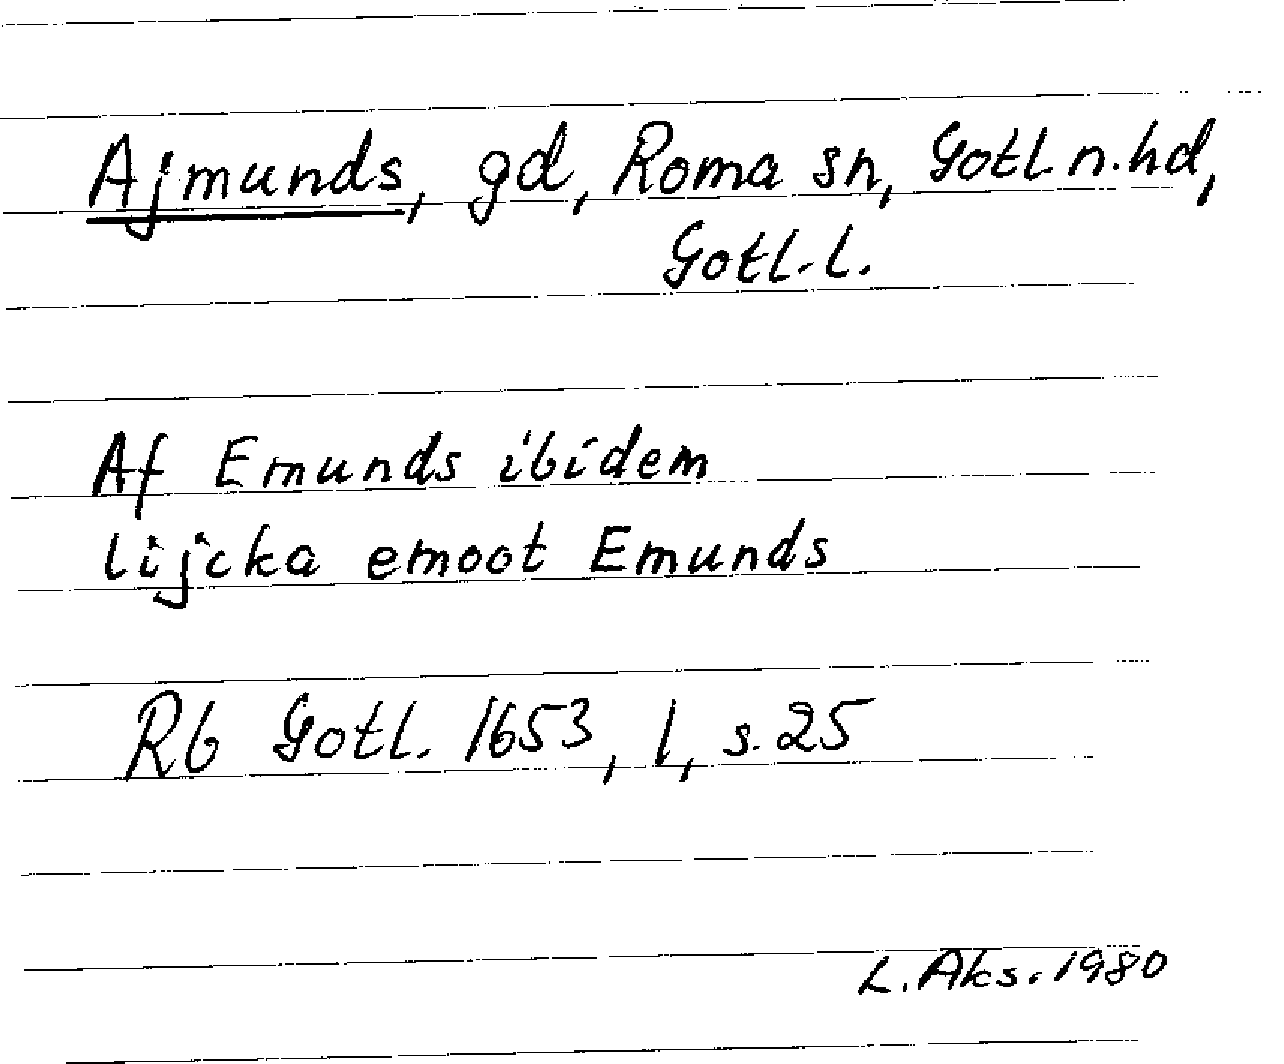 Ajmunds, gd, Roma sn, Gotl. n. hd,
Gotl. l.
Af Emunds ibidem
lijcka emoot Emunds
Rb Gotl. 1653, 1, s. 25
L. Aks. 1980